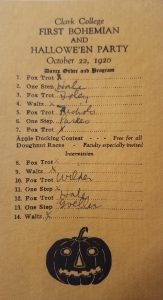 Clark College
FIRST BOHEMIAN
AND
HALLOWE'EN PARTY
October 22, 1920
Dance Order and Program
1. Fox Trot X
2. One Step
3. Fox Trot
4. Waltz X
5. Fox Trot Nichols
6. One Step
7. Fox Trot X
Apple Ducking Contest - - Free for all
Doughnut Races - Faculty especially invited
Intermission
8. Fox Trot X
9. Waltz X
10. Fox Trot Wilder
11. One Step X
12. Fox Trot
13. One Step
14. Waltz X